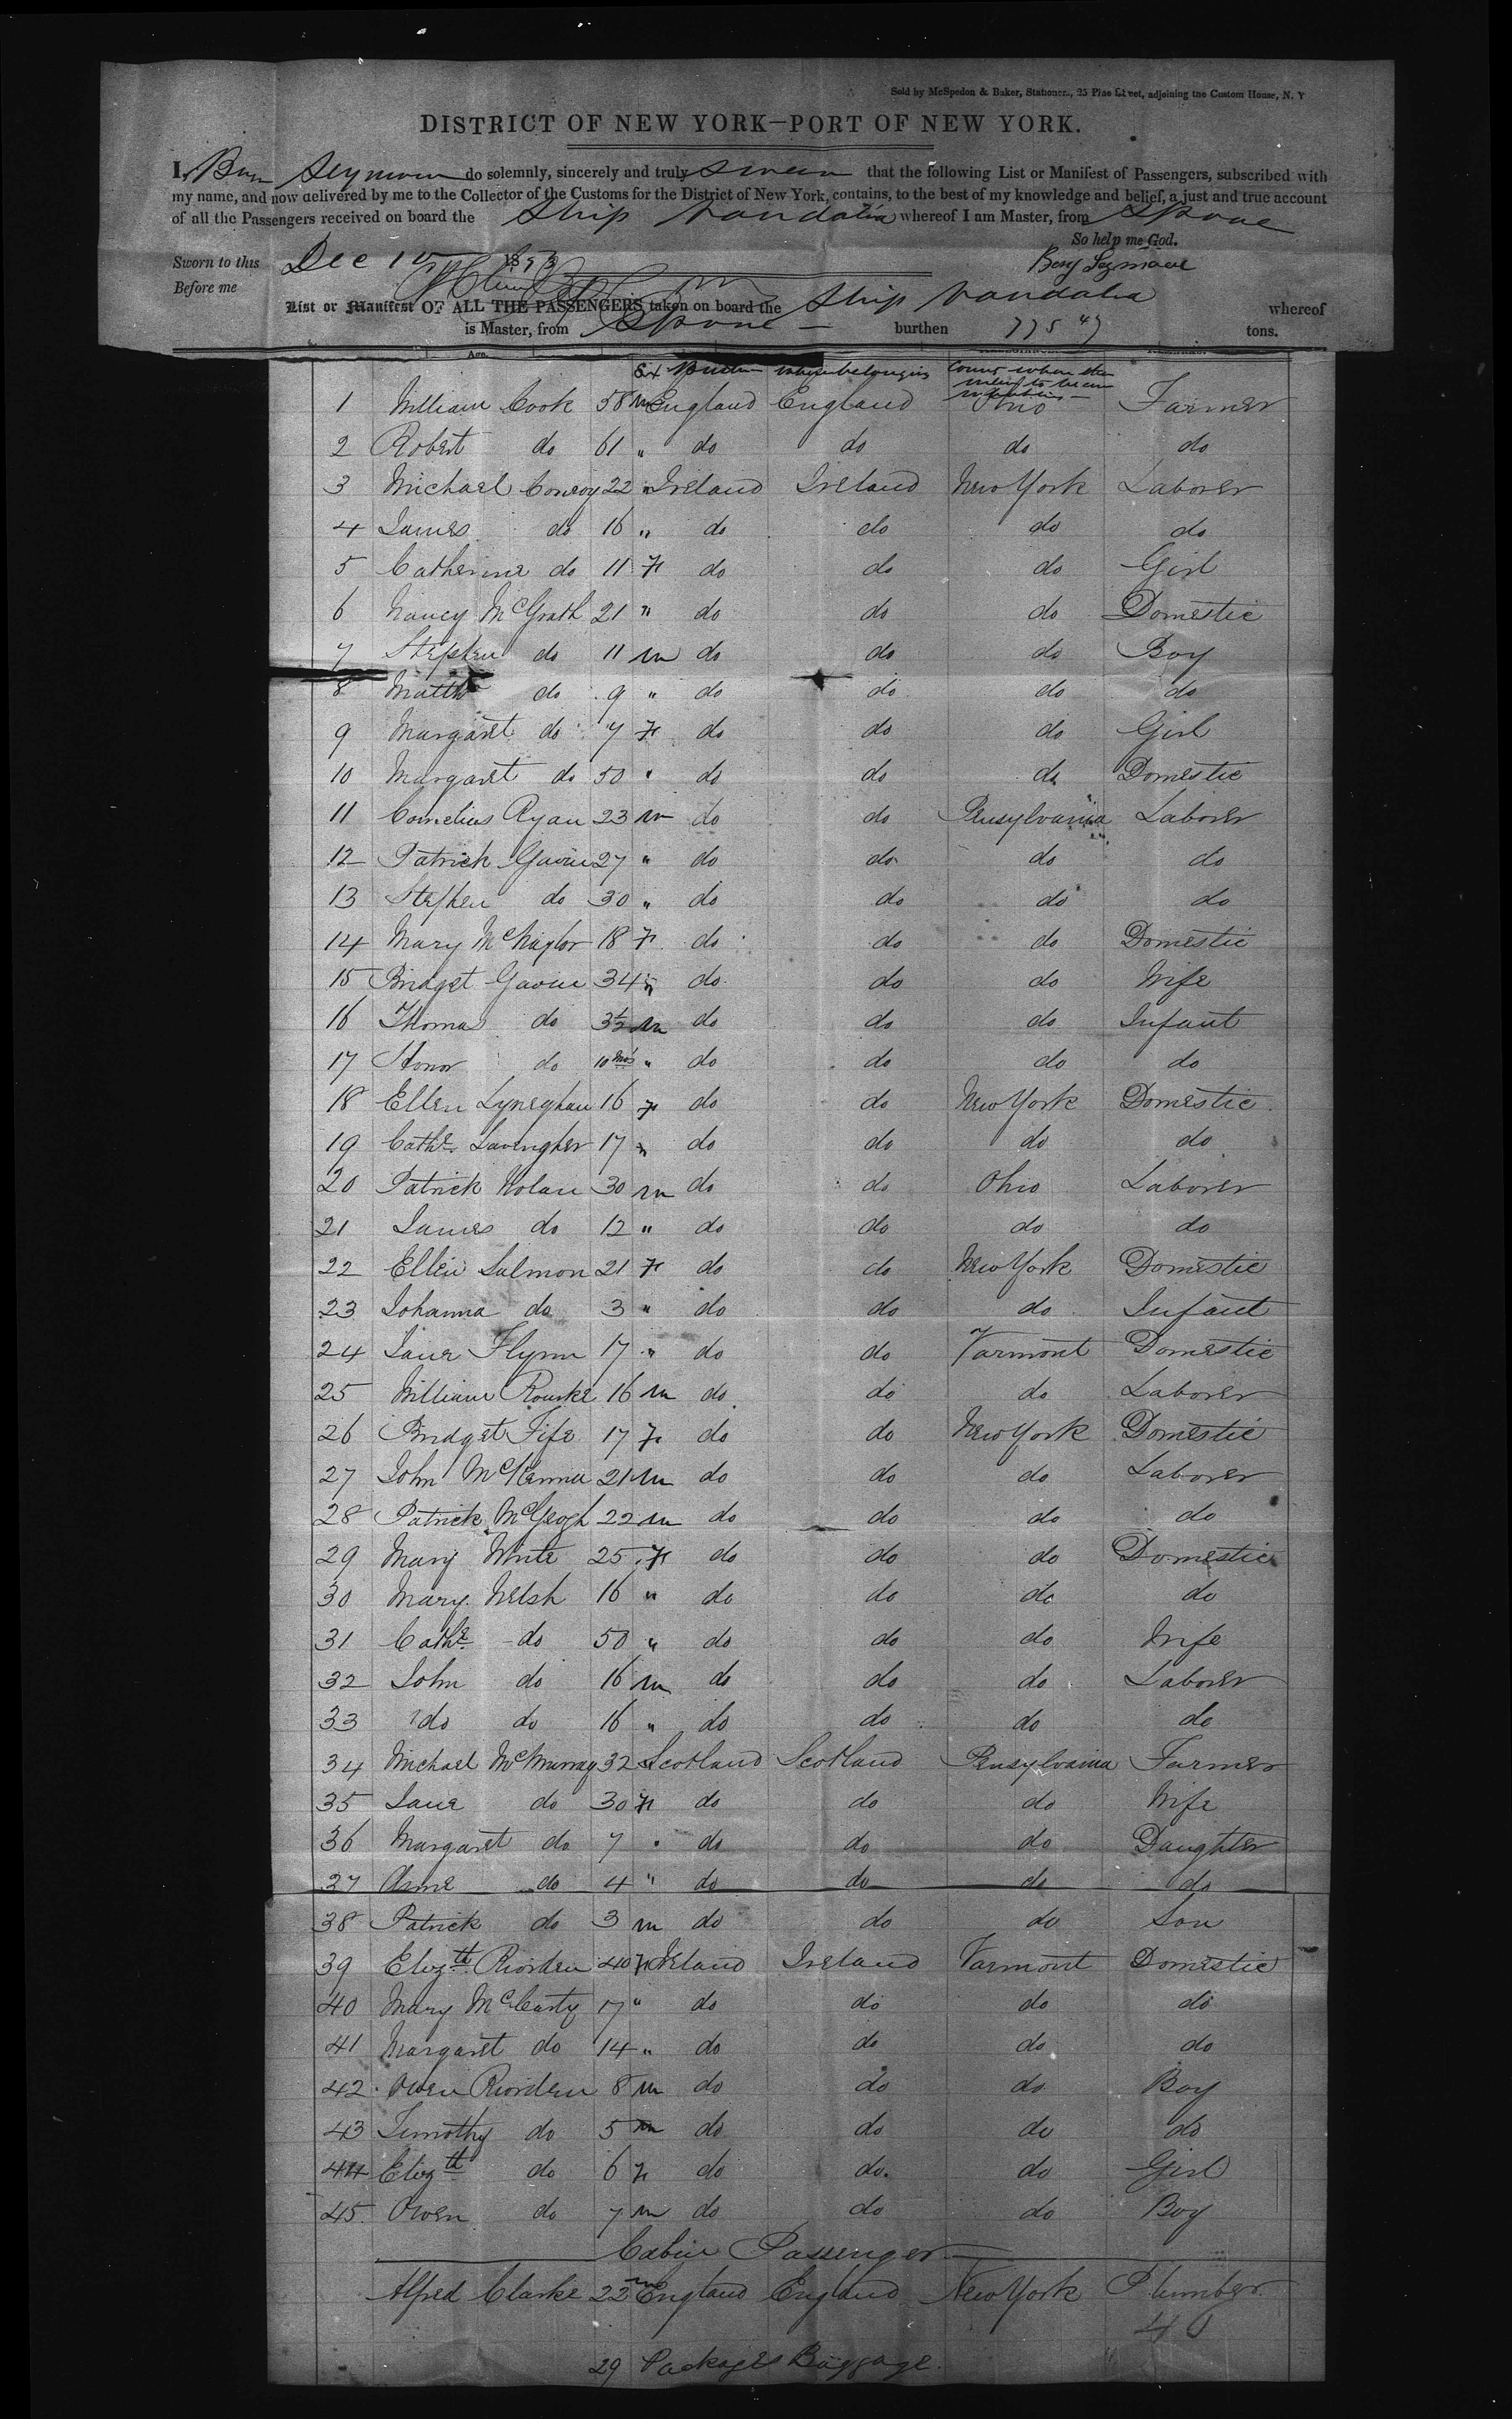 Sold by McSpedon & Baker, Stationers, 25 Pine Street, adjoining the Custom House, N. Y
DISTRICT OF NEW YORK—PORT OF NEW YORK.
I, Benj Seymour do solemnly, sincerely and truly swear that the following List or Manifest of Passengers, subscribed with
my name, and now delivered by me to the Collector of the Customs for the District of New York, contains, to the best of my knowledge and belief, a just and true account
of all the Passengers received on board the Ship Vandalia whereof I am Master, from
So help me God.
Sworn to this Dec 10 1853 Benj Seymour
Before me
List or Manifest OF ALL THE PASSENGERS taken on board the Ship Vandalia whereof
is Master, from burthen 775 47 tons.
Age.
Sex where belonging Country where they intend to become inhabitants
1 William Cook 58 m England England Ohio Farmer
2 Robert do 61 " do do do do
3 Michael Conroy 22 " Ireland Ireland New York Laborer
4 James do 16 " do do do do
5 Catherine do 11 F do do do Girl
6 Nancy McGrath 21 " do do do Domestic
7 Stephen do 11 m do do do Boy
8 Matthw do 9 " do do do do
9 Margaret do 7 F do do do Girl
10 Margaret do 50 " do do do Domestic
11 Cornelius Ryan 23 m do do Pensylvania Laborer
12 Patrick Gavin 27 " do do do do
13 Stephen do 30 " do do do do
14 Mary 18 F do do do Domestic
15 Bridget Gavin 34 " do do do Wife
16 Thomas do 3½ m do do do Infant
17 Honor do 10 mos " do do do do
18 Ellen Lyneghan 16 F do do New York Domestic
19 Cathe Lavengher 17 " do do do do
20 Patrick Nolan 30 m do do Ohio Laborer
21 James do 12 " do do do do
22 Ellen Salmon 21 F do do New York Domestic
23 Johanna do 3 " do do do Infant
24 Jane Flynn 17 " do do Varmont Domestic
25 William Rourke 16 m do do do Laborer
26 Bridget Fife 17 F do do New York Domestic
27 John McKenna 21 m do do do Laborer
28 Patrick McGeogh 22 m do do do do
29 Mary White 25 F do do do Domestic
30 Mary Welsh 16 " do do do do
31 Cathe do 50 " do do do Wife
32 John do 16 m do do do Laborer
33 do do 16 " do do do do
34 Michael McMurray 32 " Scotland Scotland Pensylvania Farmer
35 Jane do 30 F do do do Wife
36 Margaret do 7 " do do do Daughter
37 Anne do 4 " do do do do
38 Patrick do 3 m do do do Son
39 Elizth Riorden 40 F Ireland Ireland Varmont Domestic
40 Mary McCarty 17 " do do do do
41 Margaret do 14 " do do do do
42 Owen Riorden 8 m do do do Boy
43 Timothy do 5 m do do do do
44 Elizth do 6 F do do do Girl
45 Owen do 7 m do do do Boy
Cabin Passenger
Alfred Clarke 22 m England England New York Plumber
29 Packages Baggage.